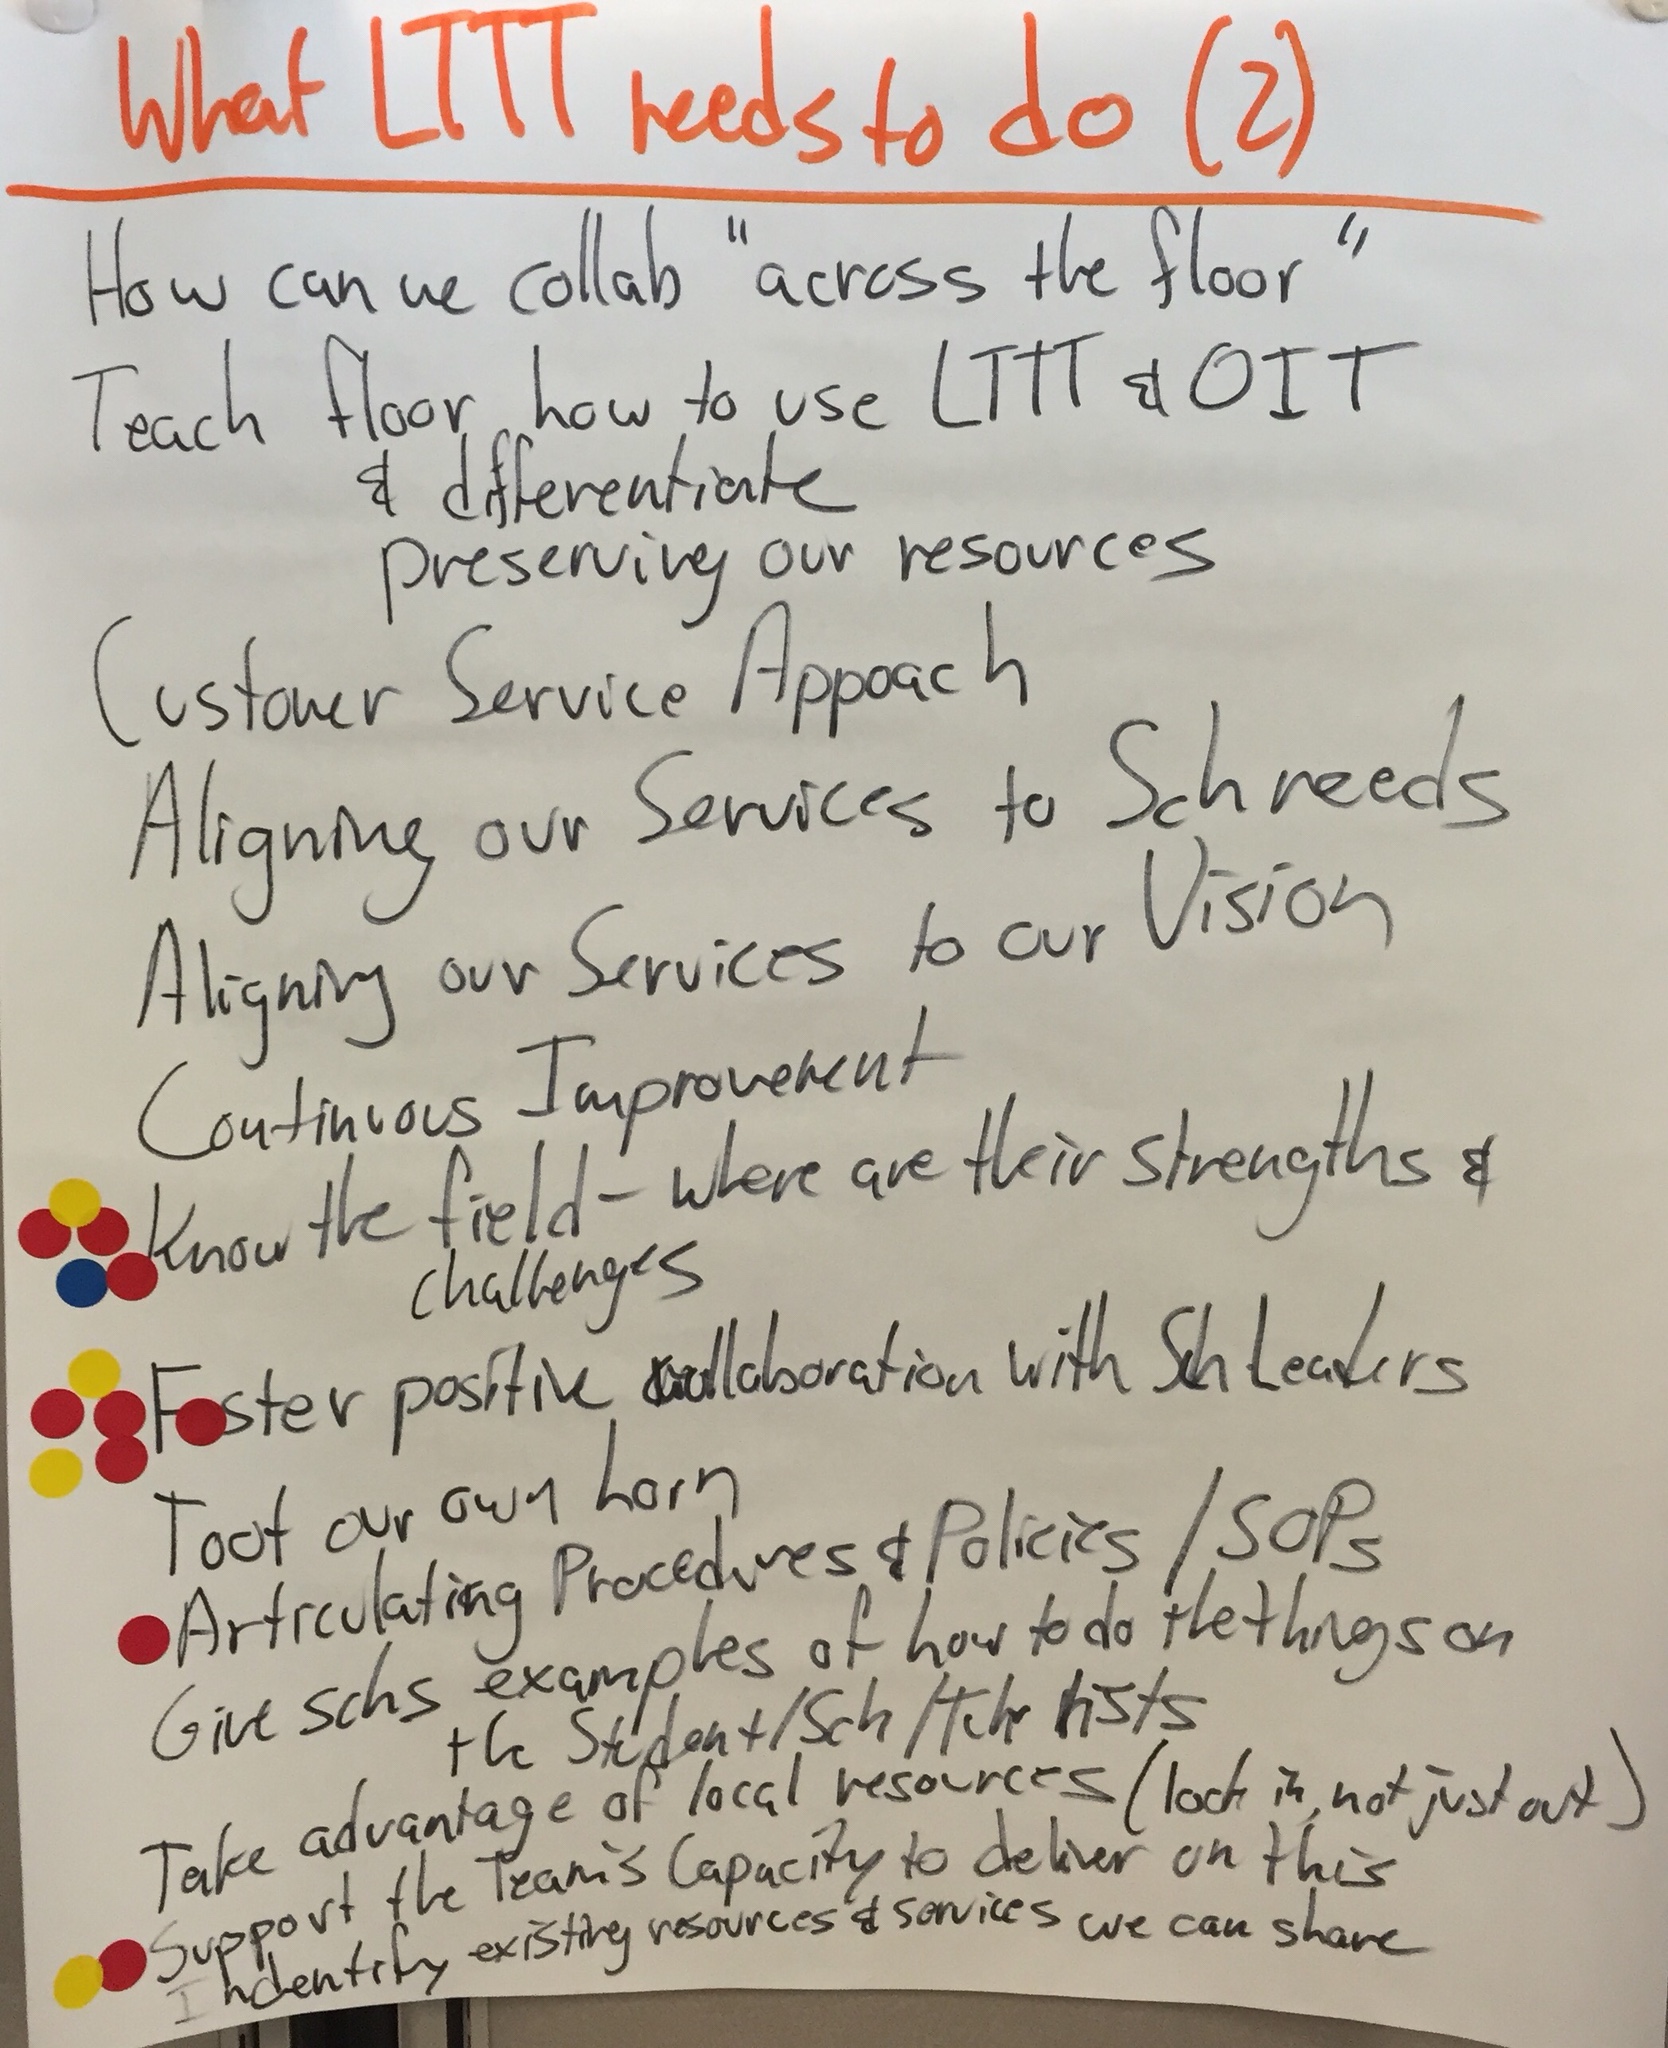 What LTTT needs to do (2)
How can we collab "across the floor"
Teach floor how to use LTTT & OIT
& differentiate
preserving our resources
Customer Service Appoach
Aligning our Services to Sch needs
Aligning our Services to our Vision
Continuous Improvement
Know the field - where are their strengths &
challenges
Foster positive collaboration with Sch Leaders
Toot our own horn
Articulating Procedures & Policies / SOPs
Give schs examples of how to do the things on
the Student/Sch/Tchr lists
Take advantage of local resources (look in, not just out)
Support the Team's Capacity to deliver on this
Indentify existing resources & services we can share